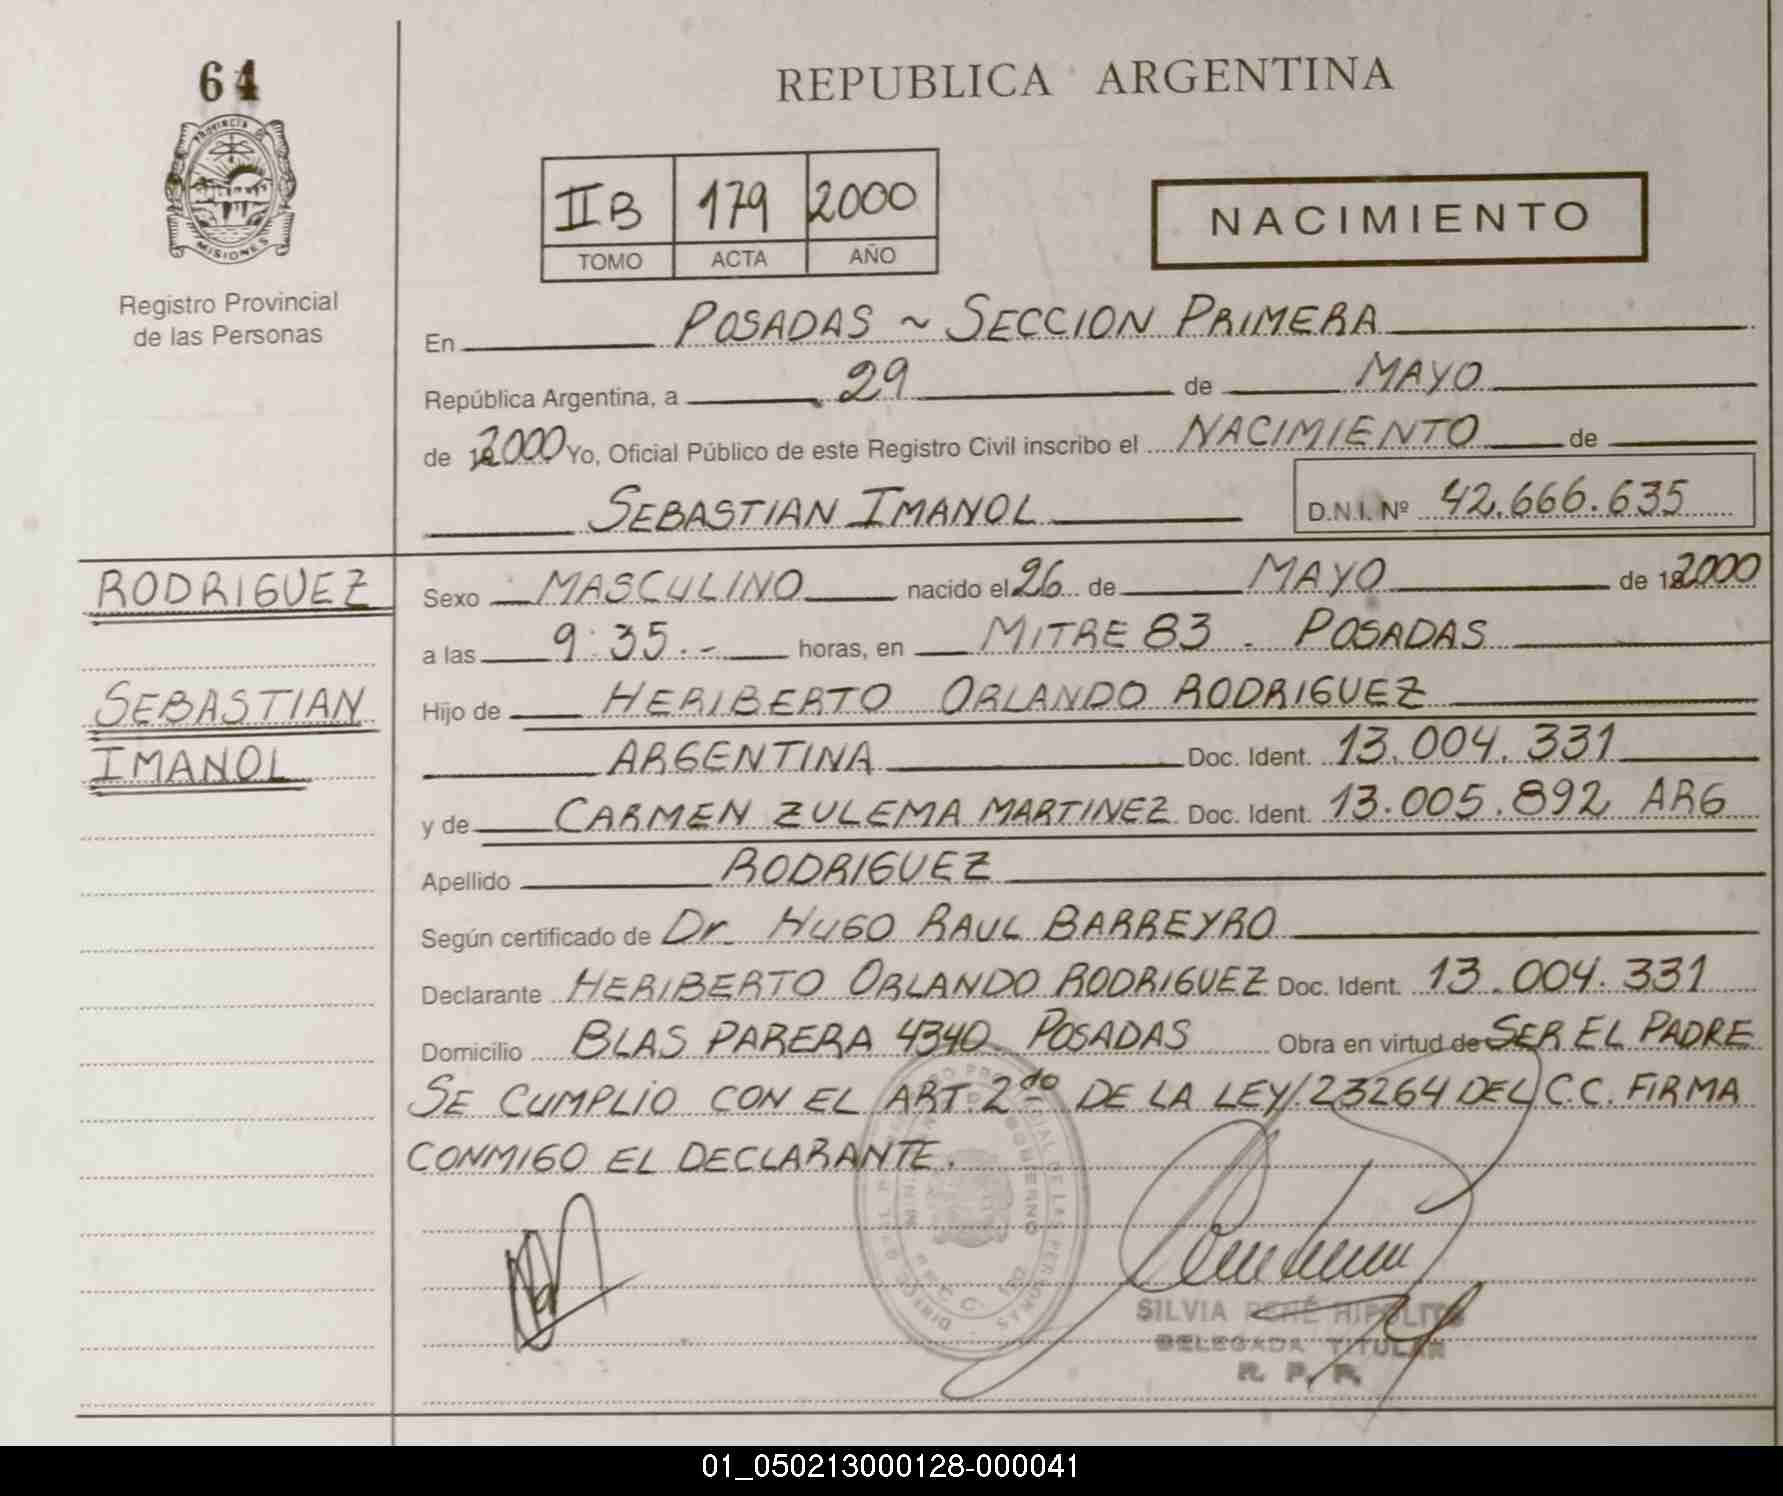 64
PROVINCIA DE
MISIONES
Registro Provincial
de las Personas
REPUBLICA ARGENTINA
II B 179 2000
TOMO ACTA AÑO
NACIMIENTO
En POSADAS ~ SECCION PRIMERA
República Argentina, a 29 de MAYO
de 2000 Yo, Oficial Público de este Registro Civil inscribo el NACIMIENTO de
SEBASTIAN IMANOL D.N.I. Nº 42.666.635
RODRIGUEZ
SEBASTIAN
IMANOL
Sexo MASCULINO nacido el 26 de MAYO de 2000
a las 9:35.- horas, en MITRE 83 - POSADAS
Hijo de HERIBERTO ORLANDO RODRIGUEZ
ARGENTINA Doc. Ident. 13.004.331
y de CARMEN ZULEMA MARTINEZ Doc. Ident. 13.005.892 ARG
Apellido RODRIGUEZ
Según certificado de Dr. HUGO RAUL BARREYRO
Declarante HERIBERTO ORLANDO RODRIGUEZ Doc. Ident. 13.004.331
Domicilio BLAS PARERA 4340 POSADAS Obra en virtud de SER EL PADRE
SE CUMPLIO CON EL ART. 2do DE LA LEY 23264 DEL C.C. FIRMA
CONMIGO EL DECLARANTE.
SILVIA RENÉ HIPOLITO
DELEGADA TITULAR
R. P. P.
01_050213000128-000041